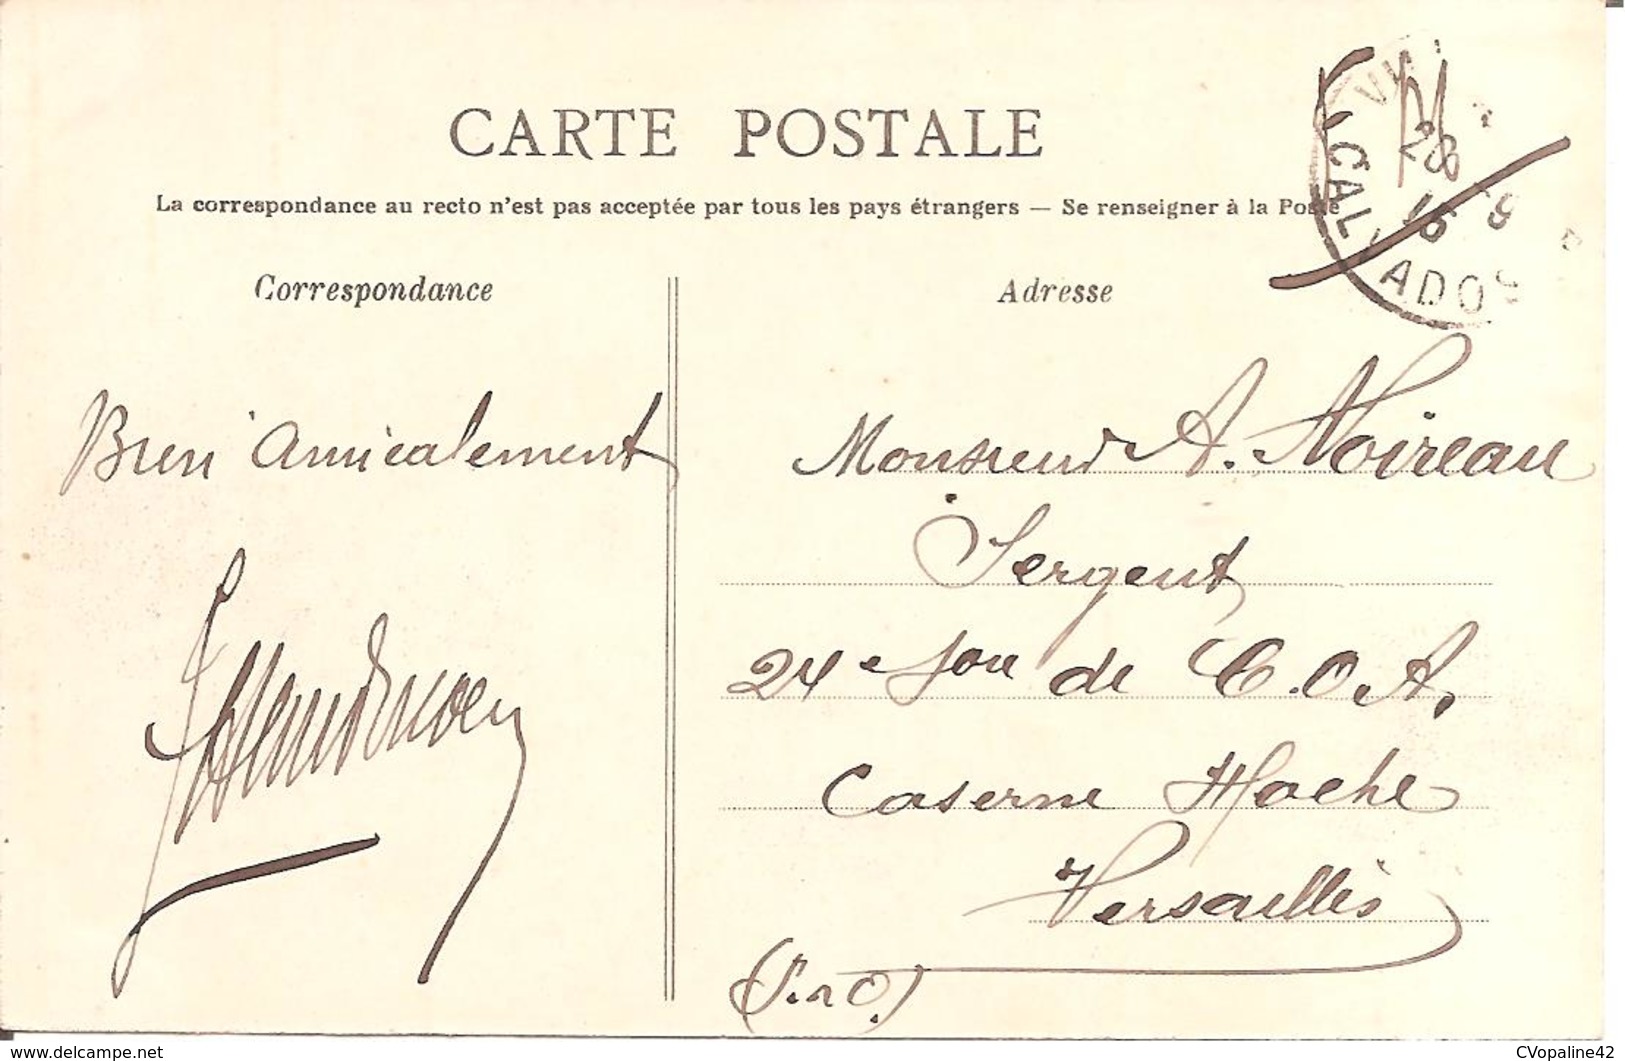 CARTE POSTALE
La correspondance au recto n'est pas acceptée par tous les pays étrangers — Se renseigner à la Poste
Correspondance
Adresse
CALVADOS
Bien amicalement
Monsieur A. Noireau
Sergent
24e son de C.O.A.
Caserne Hoche
Versailles
(S. et O.)
delcampe.net
CVopaline42